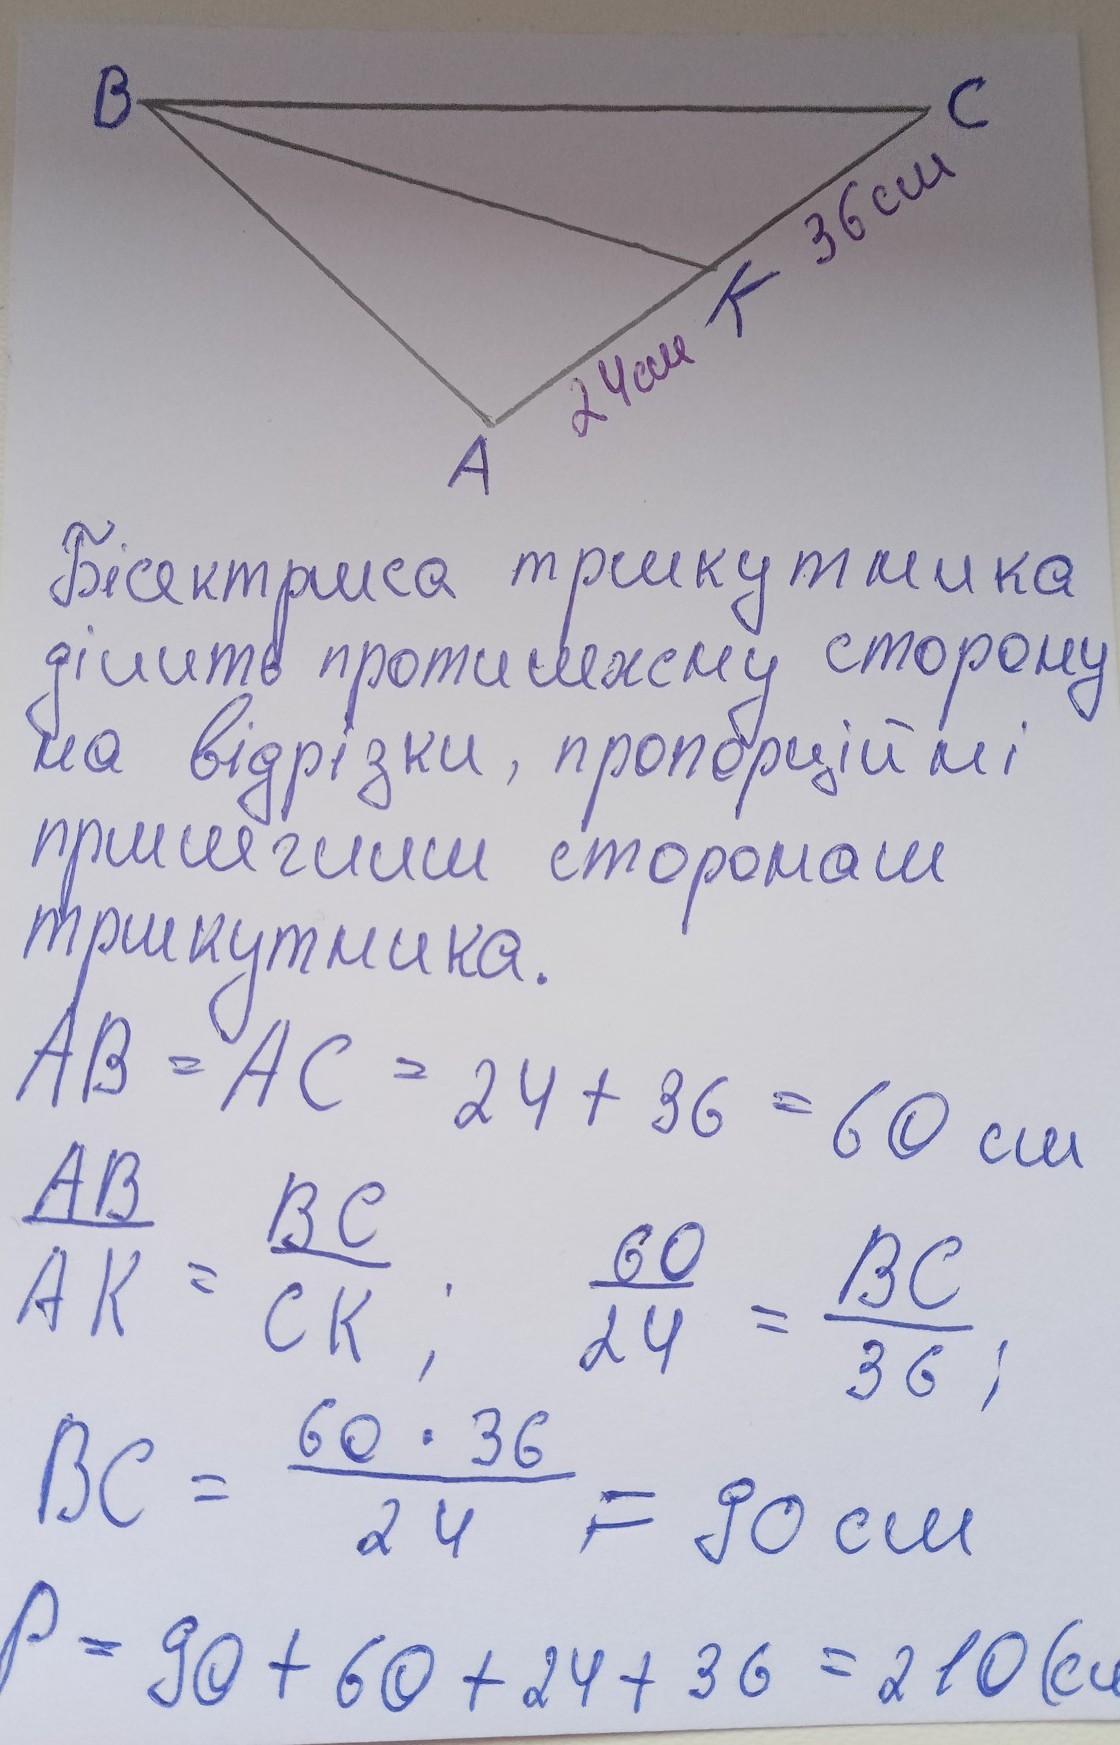 B
C
36см
K
24см
A
Бісектриса трикутника
ділить протилежну сторону
на відрізки, пропорційні
прилеглим сторонам
трикутника.
AB = AC = 24 + 36 = 60 см
AB/AK = BC/CK ; 60/24 = BC/36 ;
BC = 60 · 36/24 = 90 см
P = 90 + 60 + 24 + 36 = 210 (см